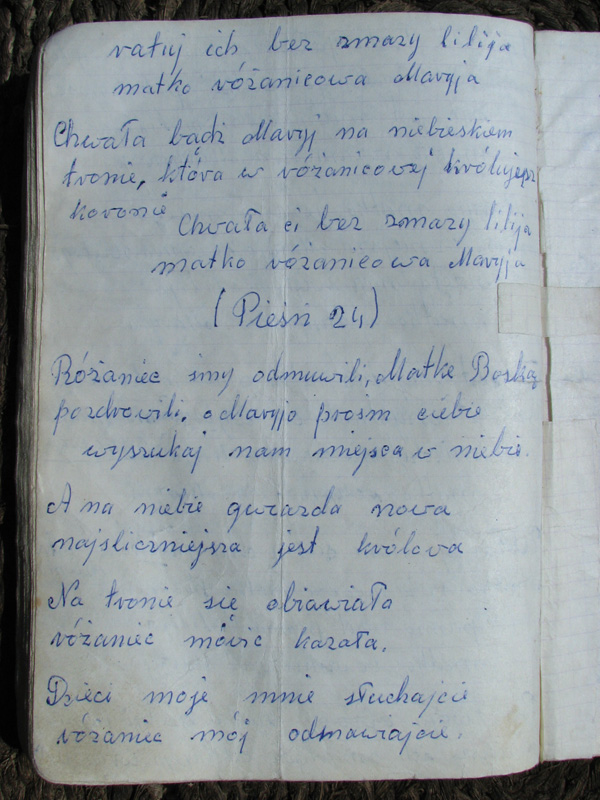 ratuj ich bez zmazy lilija
matko różanicowa Maryja
Chwała bądź Maryj na niebieskiem
tronie, która w różanicowej królujesz
koronie
Chwała ci bez zmazy lilija
matko różanicowa Maryja
(Pieśń 24)
Różaniec śmy odmuwili, Matke Boską
pozdrowili, o Maryjo prosim ciebie
wyszukaj nam miejsca w niebie.
A na niebie gwiazda nowa
najsliczniejsza jest królowa
Na tronie się obiawiała
różaniec mówić kazała.
Dzieci moje mnie słuchajcie
różaniec mój odmawiajcie.